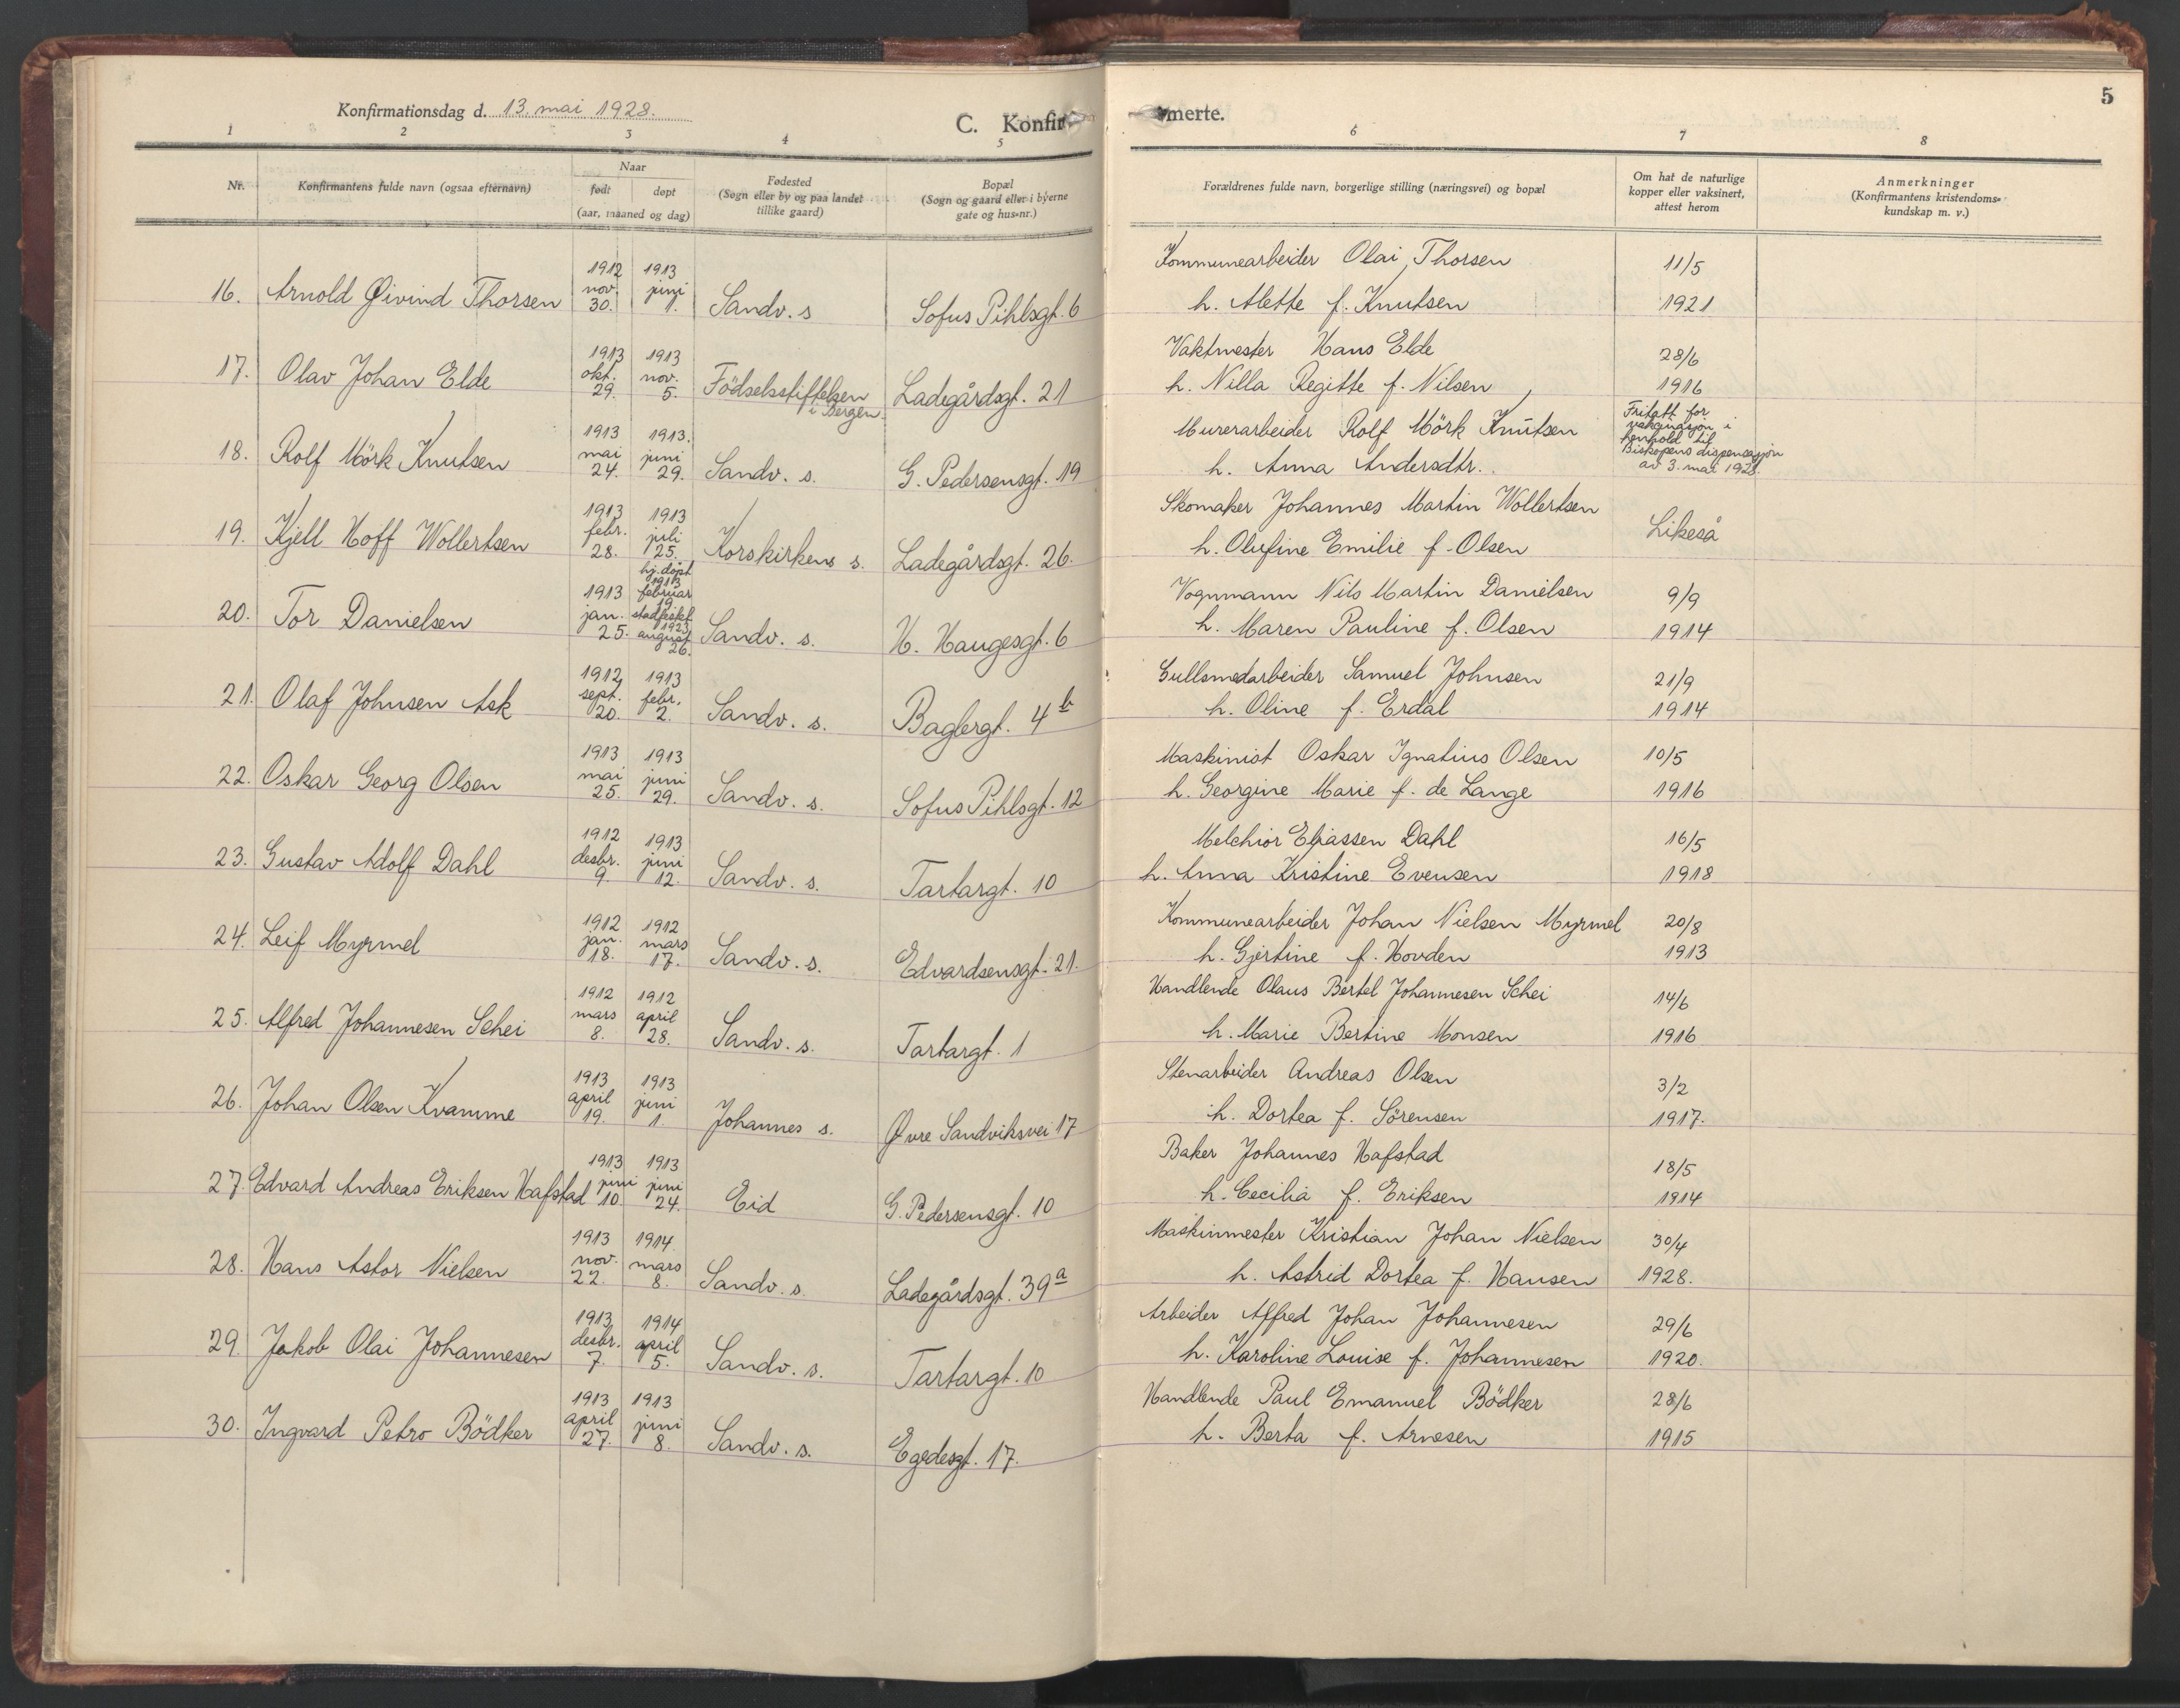 Konfirmationsdag d. 13. mai 1928.
C. Konfir merte.
5
1 2 3 4 5 6 7 8
Nr.
Konfirmantens fulde navn (ogsaa efternavn)
Naar
født
døpt
(aar, maaned og dag)
Fødested
(Sogn eller by og paa landet
tillike gaard)
Bopæl
(Sogn og gaard eller i byerne
gate og hus-nr.)
Forældrenes fulde navn, borgerlige stilling (næringsvei) og bopæl
Om hat de naturlige
kopper eller vaksinert,
attest herom
Anmerkninger
(Konfirmantens kristendoms-
kundskap m. v.)
16. Arnold Øivind Thorsen 1912 nov. 30. 1913 juni 1. Sandv. s Sofus Pihlsgt. 6
Kommunearbeider Olai Thorsen 11/5
h. Alette f. Knutsen 1921
17. Olav Johan Elde 1913 okt. 29. 1913 nov. 5. Födselsstiftelsen i Bergen Ladegårdsgt. 21
Vaktmester Hans Elde 28/6
h. Nilla Regitte f. Nilsen 1916
18. Rolf Mörk Knutsen 1913 mai 24. 1913. juni 29. Sandv. s. G. Pedersensgt. 19
Murerarbeider Rolf Mörk Knutsen
h. Anna Andersdtr.
Fritatt for
vaksinasjon i
henhold til
Biskopens dispensasjon
av 3. mai 1928.
19. Kjell Hoff Wollertsen 1913 febr. 28. 1913 juli 25. Korskirkens s. Ladegårdsgt. 26.
Skomaker Johannes Martin Wollertsen
h. Olufine Emilie f. Olsen Likeså
20. Tor Danielsen 1913 jan. 25. hj. döpt 1913 februar 19. stadfestet 1923 august 26. Sandv. s. H. Haugesgt. 6
Vognmann Nils Martin Danielsen 9/9
h. Maren Pauline f. Olsen 1914
21. Olaf Johnsen Ask 1912 sept. 20. 1913 febr. 2. Sandv. s. Baglergt. 4 b
Gullsmedarbeider Samuel Johnsen 21/9
h. Oline f. Erdal 1914
22. Oskar Georg Olsen 1913 mai 25. 1913 juni 29. Sandv. s. Sofus Pihlsgt. 12
Maskinist Oskar Ignatius Olsen 10/5
h. Georgine Marie f. de Lange 1916
23. Gustav Adolf Dahl 1912 desbr. 9. 1913 juni 12. Sandv. s. Tartargt. 10
Melchior Eliassen Dahl 16/5
h. Anna Kristine Evensen 1918
24. Leif Myrmel 1912 jan. 18. 1912 mars 17. Sandv. s. Edvardsensgt. 21.
Kommunearbeider Johan Nielsen Myrmel 20/8
h. Gjertine f. Hovden 1913
25. Alfred Johannesen Schei 1912 mars 8. 1912 april 28. Sandv. s. Tartargt. 1
Handlende Olaus Bertel Johannesen Schei 14/6
h. Marie Bertine Monsen 1916
26. Johan Olsen Kvamme 1913 april 19. 1913 juni 1. Johannes s. Øvre Sandviksvei 17
Stenarbeider Andreas Olsen 3/2
h. Dortea f. Sörensen 1917.
27. Edvard Andreas Eriksen Hafstad 1913 juni 10. 1913 juni 24. Eid G. Pedersensgt. 10
Baker Johannes Hafstad 18/5
h. Cecilia f. Eriksen 1914
28. Hans Astor Nielsen 1913 nov. 22. 1914. mars 8. Sandv. s. Ladegårdsgt. 39 a
Maskinmester Kristian Johan Nielsen 30/4
h. Astrid Dortea f. Hansen 1928.
29. Jakob Olai Johannesen 1913 desbr. 7. 1914 april 5. Sandv. s. Tartargt. 10
Arbeider Alfred Johan Johannesen 29/6
h. Karoline Louise f. Johannesen 1920.
30. Ingvard Petro Bödker 1913 april 27. 1913 juni 8. Sandv. s. Egedesgt. 17.
Handlende Paul Emanuel Bödker 28/6
h. Berta f. Arnesen 1915